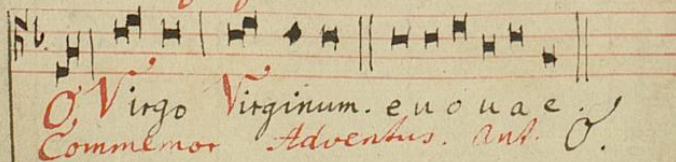 O Virgo Virginum. e u o u a e.
Commemor Adventus. Ant. O.